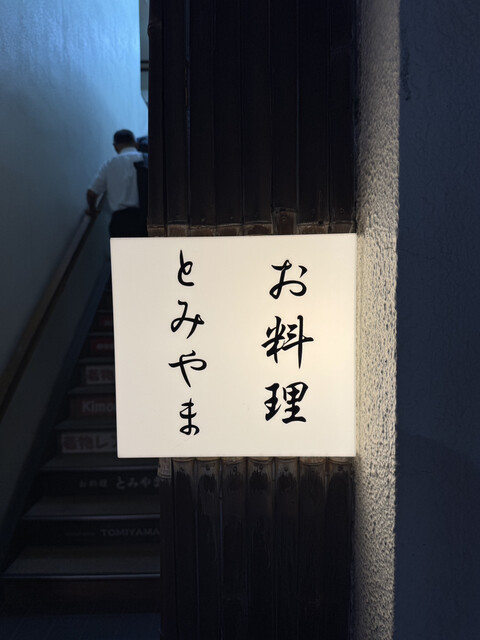 お料理
とみやま
着物
Kimo
着物レ
お料理 とみやま
TOMIYAMA